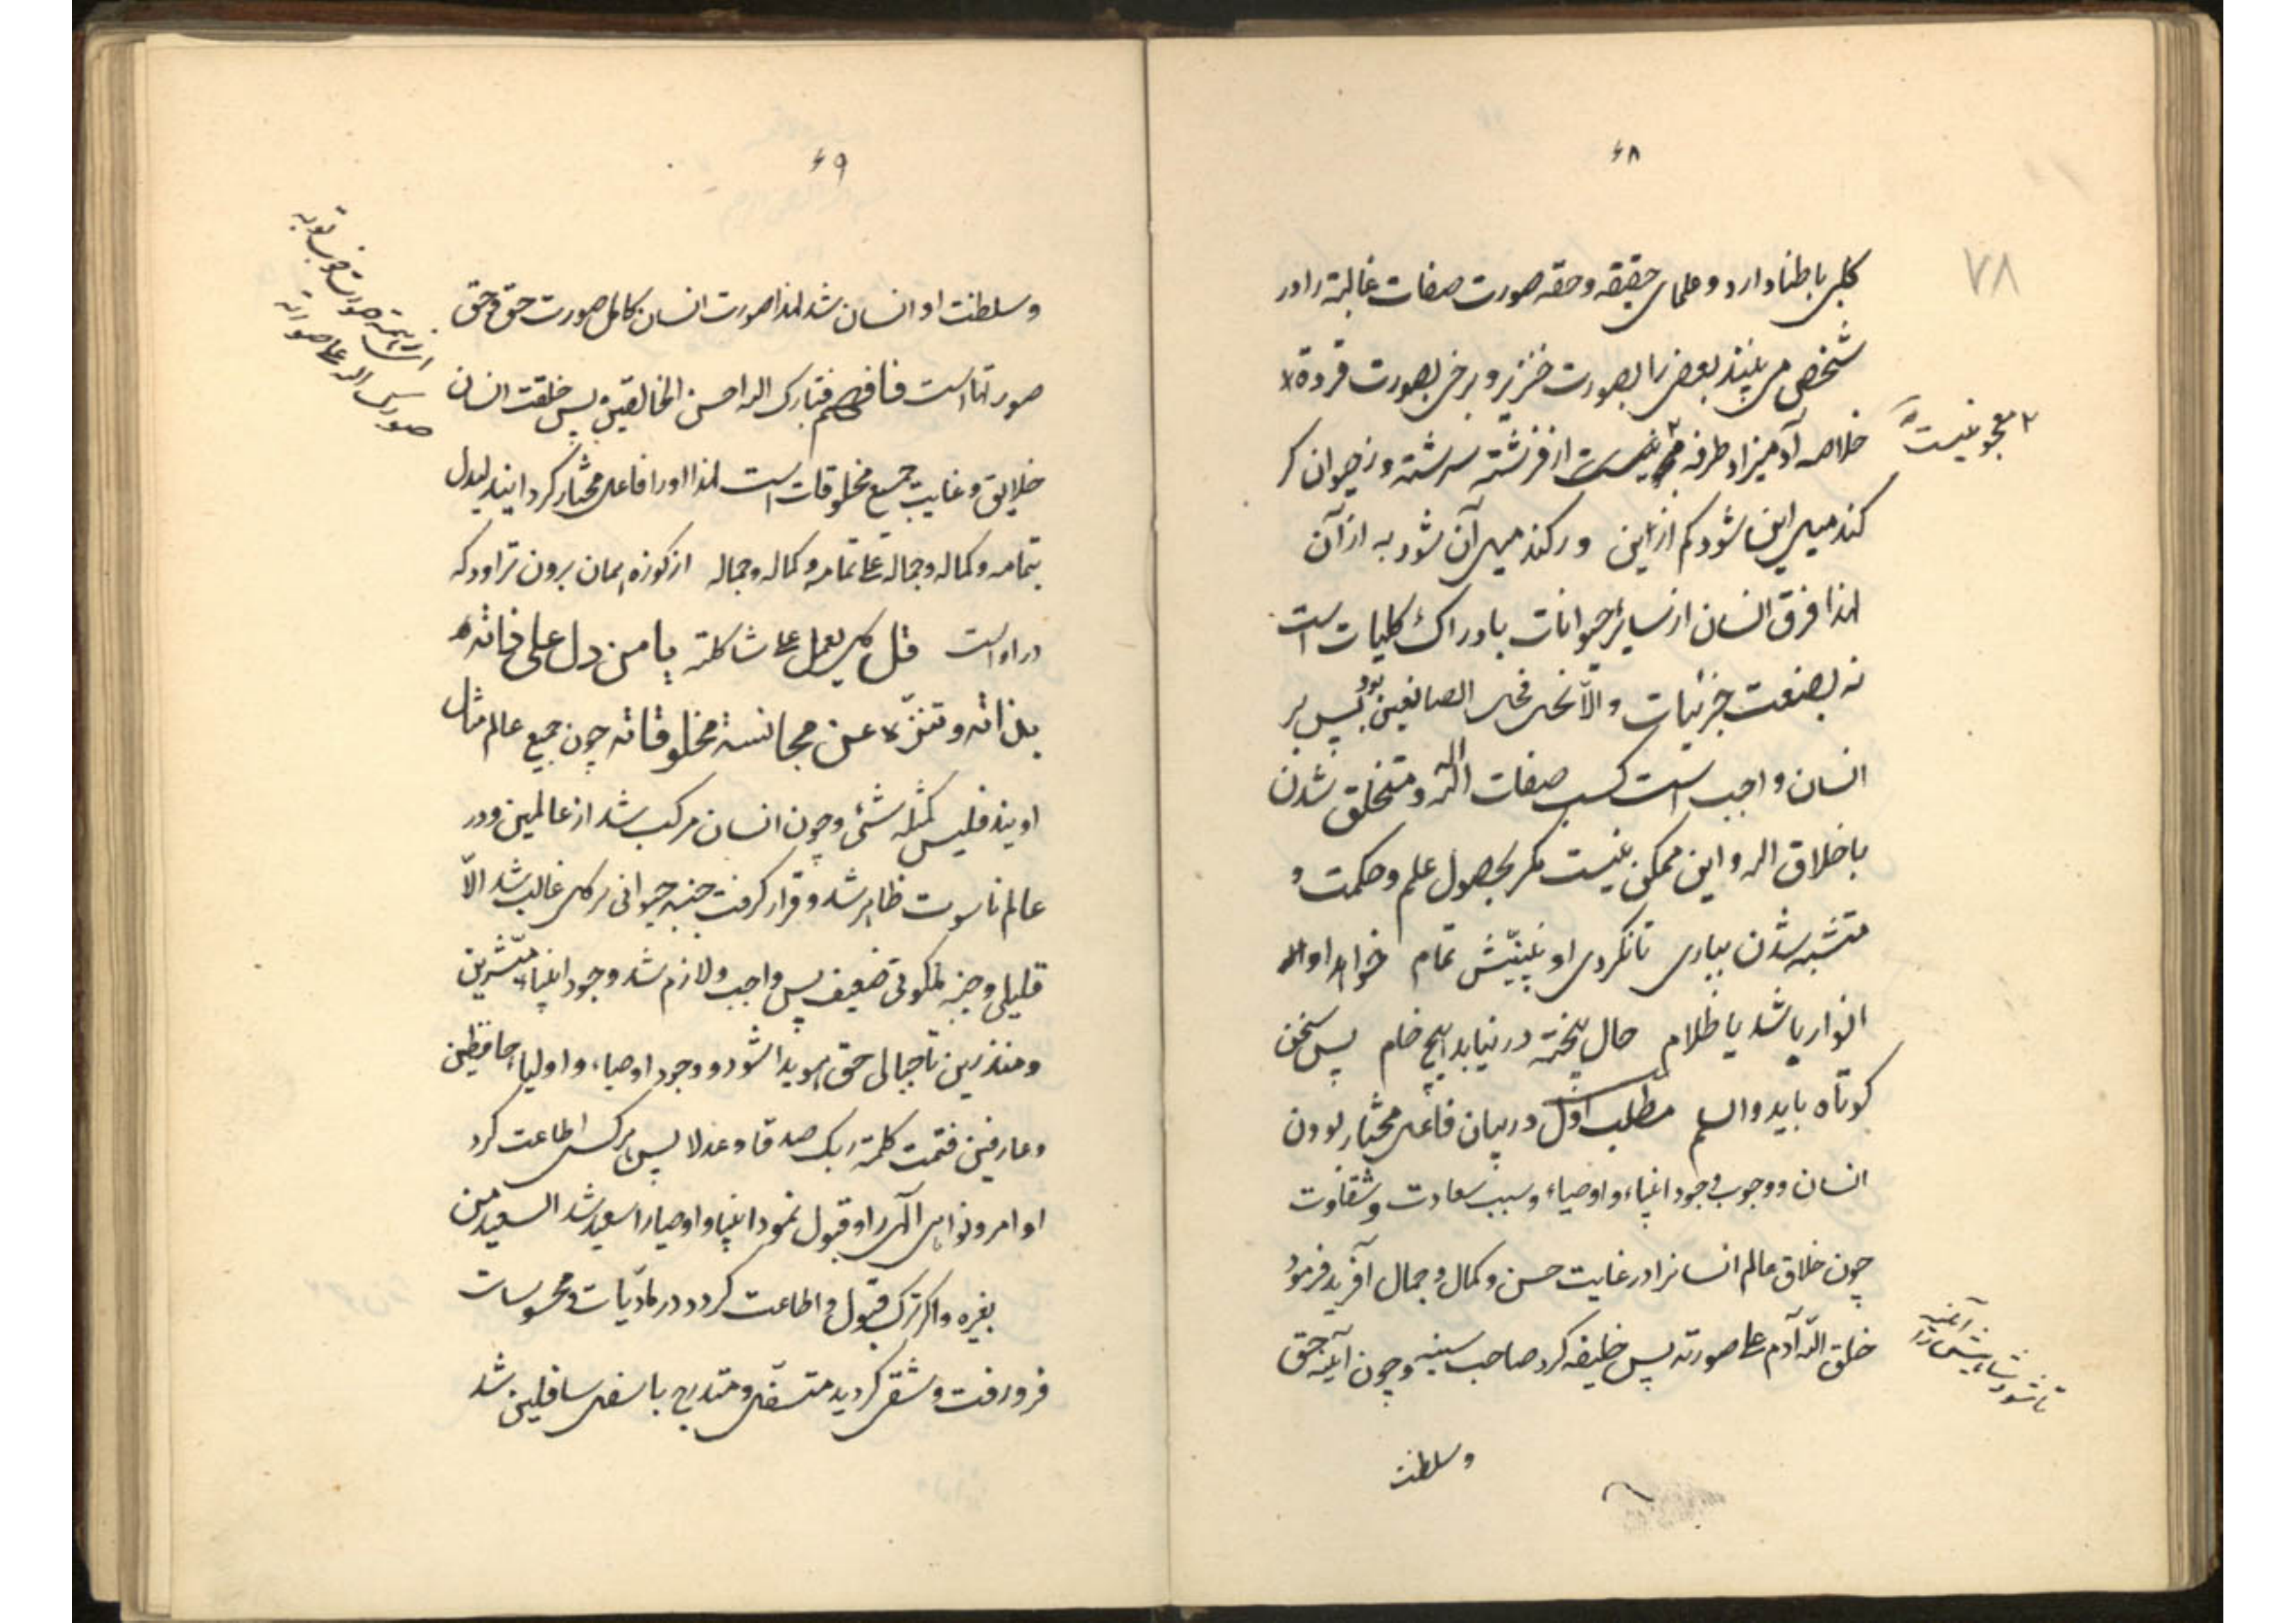 ۶۸
۷۸
کلبی باطنا دارد و علمای حقیقه و حقه صورت صفات غالبة را در
شخص می بینند بعضی را بصورت خنزیر و برخی بصورت قردة
خلاصه آدمیزاد طرفه از فرشته سرشته وز حیوان گر
معجونیست
کند میل این شود کم از این ور کند میل آن شود به از آن
لهذا فرق انسان از سایر حیوانات بادراک کلیات است
نه بصنعت جزئیات والا نحل فحل الصانعین بود پس بر
انسان واجب است کسب صفات اله و متخلق شدن
باخلاق اله و این ممکن نیست مگر بحصول علم و حکمت و
متشبه شدن بباری تا نگردی او نبینیش تمام خواه او
انوار باشد یا ظلام حال پخته در نیابد هیچ خام پس سخن
کوتاه باید والسلم مطلب اول در بیان فاعل مختار بودن
انسان و وجوب وجود انبیاء و اوصیاء و سبب سعادت و شقاوت
چون خلاق عالم انسانرا در غایت حسن و کمال و جمال آفرید فرمود
خلق الله آدم علی صورته پس خلیفه کرد صاحب سینه و چون آینه حق
تا شود شاهیش را آئینه
وسلطنت
۶۹
وسلطنت او انسان شد لهذا صورت انسان کامل صورت حق و حق
صورتها است فافهم فتبارک اله احسن الخالقین پس خلقت انسان
صورت اله علی صورته
خلایق و غایت جمیع مخلوقات است لهذا او را فاعل مختار گردانید لیدل
بتمامه و کماله و جماله علی تمامه و کماله و جماله از کوزه همان برون تراود که
در او است قل کل یعمل علی شاکلته یا من دل علی ذاته
بذاته و تنزه عن مجانسة مخلوقاته چون جمیع عالم مثال
اویند فلیس کمثله شئ و چون انسان مرکب شد از عالمین و در
عالم ناسوت ظاهر شد و قرار گرفت جنبه حیوانی بر کل غالب شد الّا
قلیلی و جنبه ملکوتی ضعیف پس واجب و لازم شد وجود انبیاء مبشّرین
و منذرین تا جمال حق هویدا شود و وجود اوصیاء و اولیاء حافظین
و عارفین فتمت کلمة ربک صدقا و عدلا پس هرکس اطاعت کرد
اوامر و نواهی الهی را و قبول نمود انبیا و اوصیا را سعید شد السعید من
بغیره و اگر ترک قبول و اطاعت کرد و در مادّیات و محسوسات
فرو رفت و شقی گردید متسفّل و متدرج باسفل سافلین شد